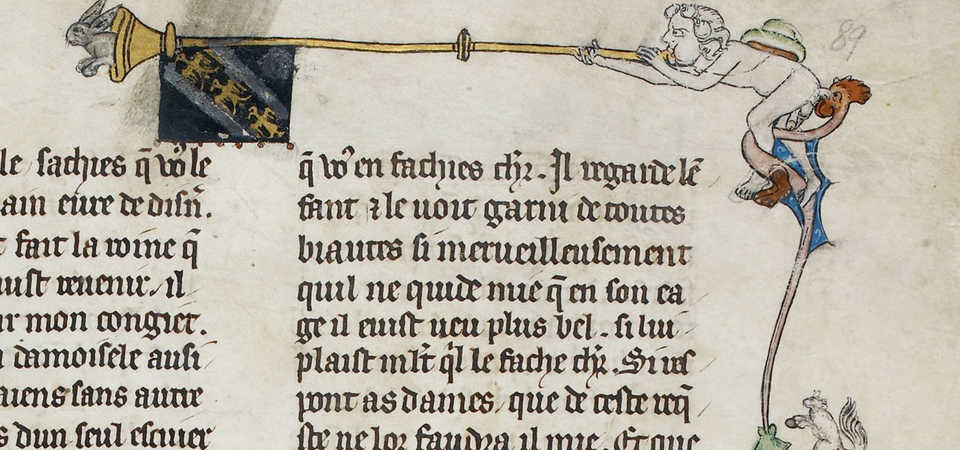 89
le sachies q̃ vo⁹ le
ain eure de disñ.
t fait la roine q̃
uist reuenir. il
ur mon congiet.
n damoisele ausi
aiens sans autre
s dun seul escuier
q̃ vo⁹ en fachies chr̃. Il regarde lẽ
fant ⁊ le uoit garni de toutes
biautes si merueilleusement
quil ne quide mie q̃ en son ea
ge il euist ueu plus bel. si lui
plaist mlt̃ q̃l le fache chr̃. Si res
pont as dames, que de ceste req̃
ste ne lor faudra il mie. Et que